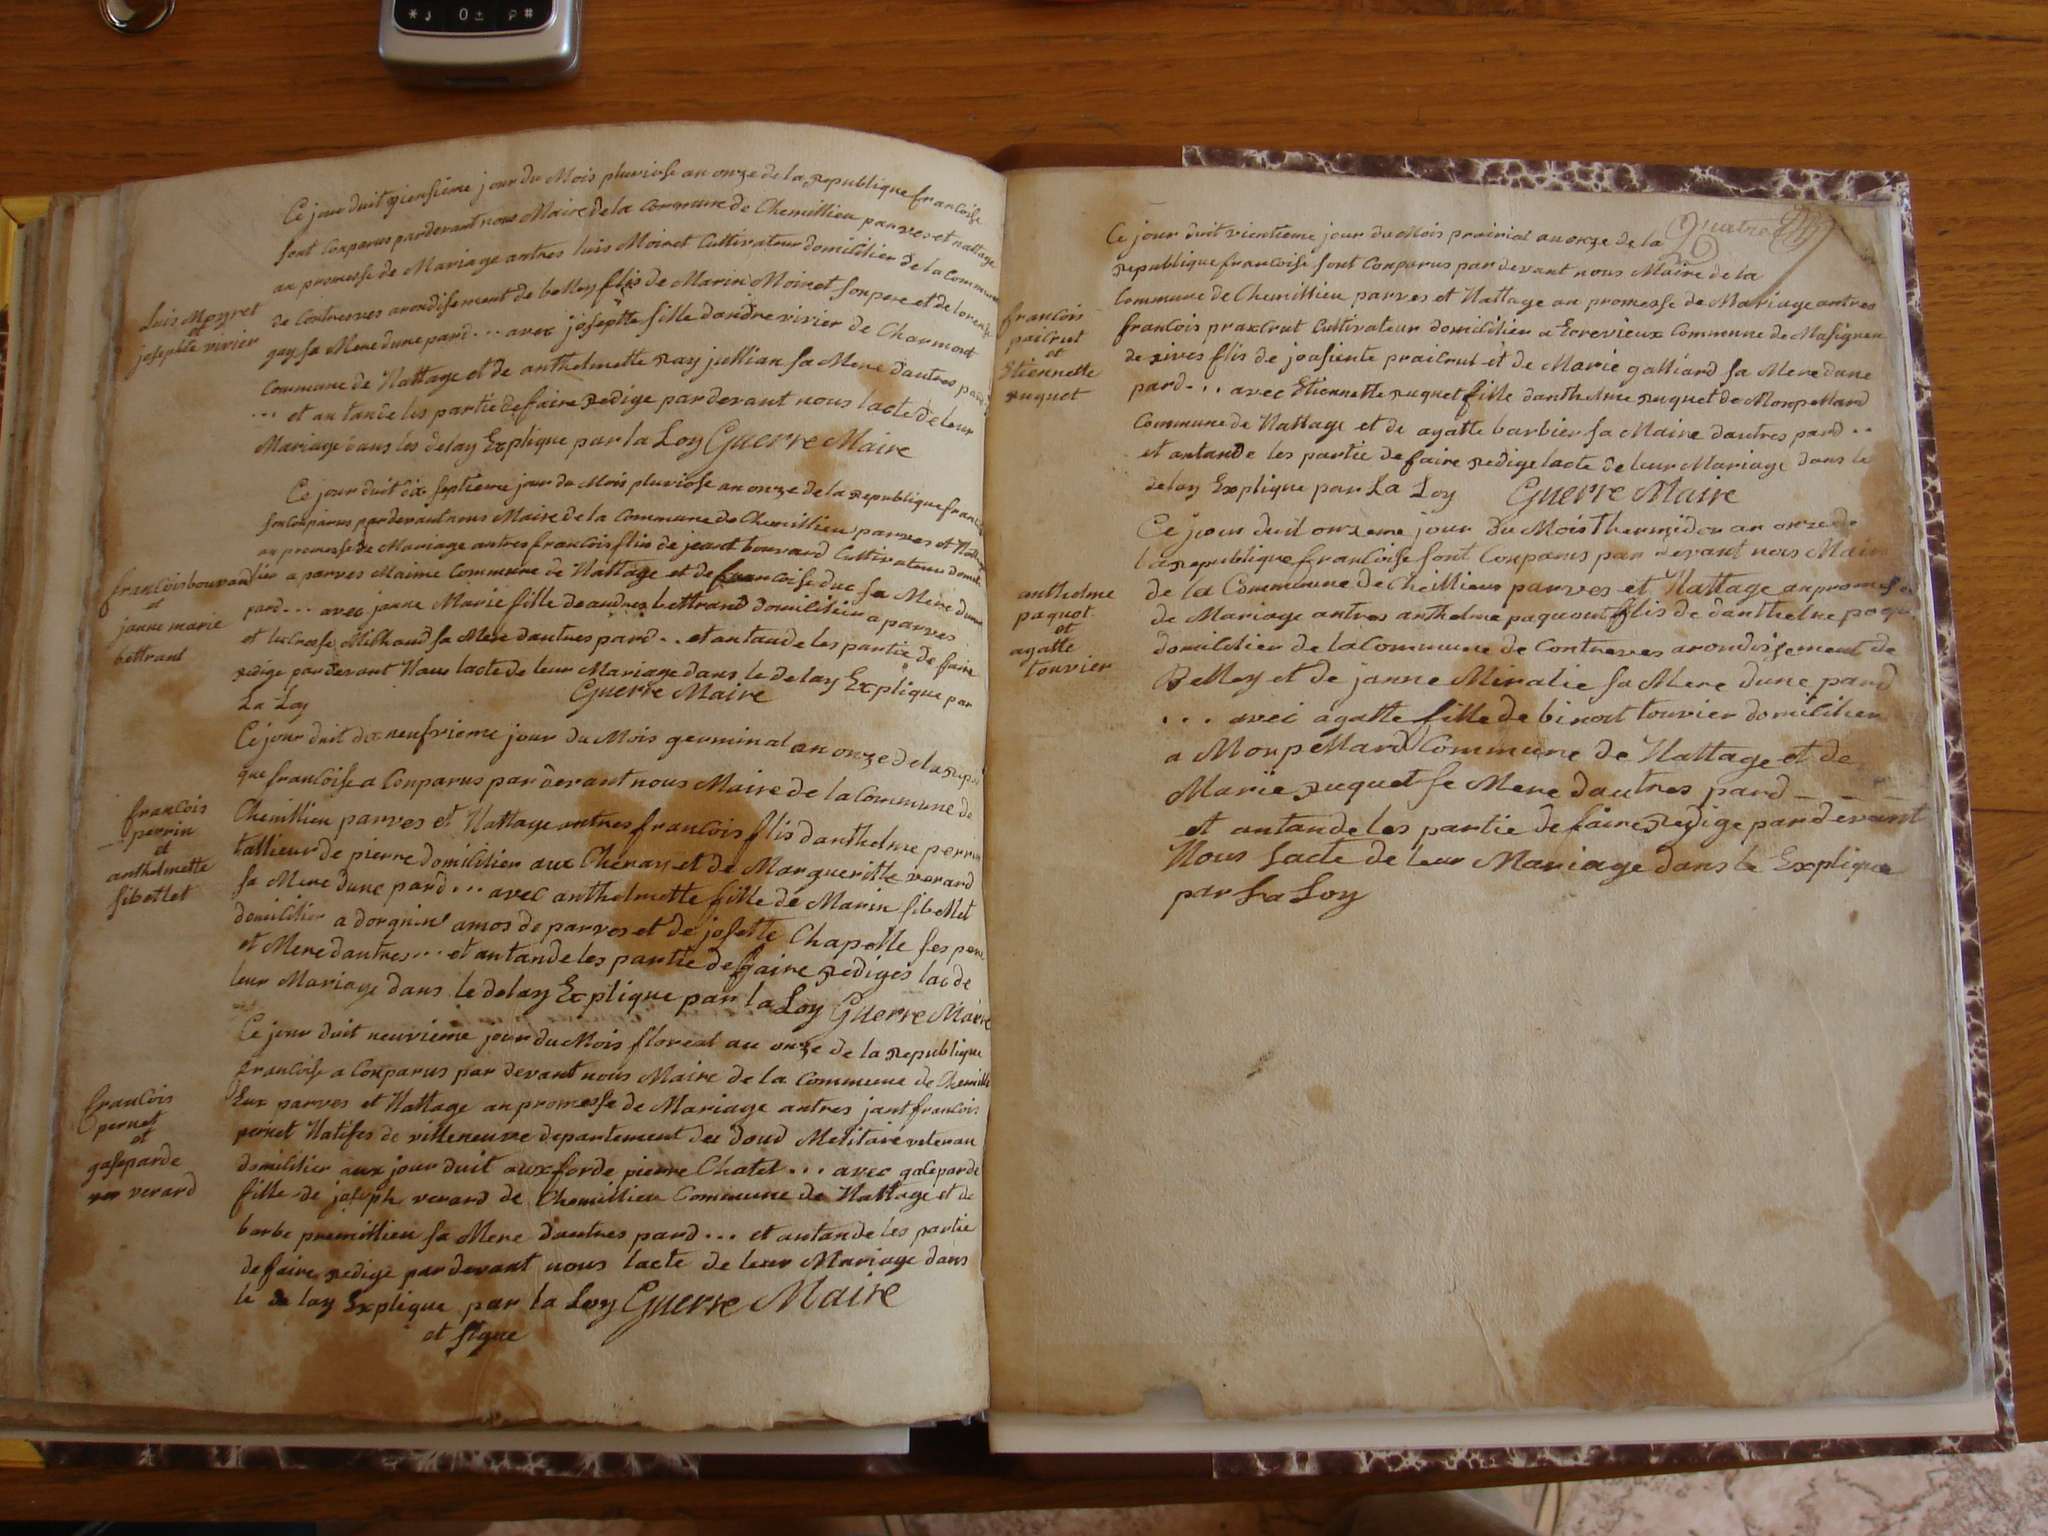 * 0 ± #
Luis Moyret
et
josephte vivier
Ce jour duit quensieme jour du Mois pluviose an onze de la republique francoise
sont Conparus pardevant nous Maire de la Commune de Chemillieu parves et nattage
an promesse de Mariage antres luis Moiret Cultivateur domicilier de la Commune
de Contrevves arondisement de belley flis de Marin Moiret son pere et de lorense
gay sa Mere dune pard ... avec josephtte fille dandre vivier de Charmont
Commune de Nattage et de anthelmette ray jullian sa Mere dautres pard
... et antande les partie de faire redige pardevant nous lacte de leur
Mariage dans les delay Explique par la Loy Guerre Maire
francois bouvard
et
janne marie
bettrant
Ce jour duit dix septieme jour du Mois pluviose an onze de la republique franc
son Conparus pardevant nous Maire de la Commune de Chemillieu parves et Nattage
an promesse de Mariage antres francois flis de jeant bouvard Cultivateur domici
lier a parves Maime Commune de Nattage et de francoise duc sa Mere dune
pard ... avec janne Marie fille de andre bettrand domicilier a parves
et lucresse Milhaud sa Mere dautres pard .. et antande les partie de faire
redige par devant Nous lacte de leur Mariage dans le delay Explique par
La Loy Guerre Maire
francois
perrin
et
anthelmette
sibetlet
Ce jour duit dix neufvieme jour du Mois germinal an onze de la repu
que francoise a Conparus par devant nous Maire de la Commune de
Chemillieu parves et Nattage antres francois flis danthelme perrin
tallieur de pierre domicilier aux Cheray et de Margueritte verard
sa Mere dune pard ... avec anthelmette fille de Marin sibellet
domicilier a dorgnin amos de parves et de josette Chapelle ses pere
et Mere dautres ... et antande les partie de faire rediges lac de
leur Mariage dans le delay Explique par la Loy Guerre Maire
francois
pernet
et
gaseparde
verard
Ce jour duit neuvieme jour du Mois floreal an onze de la republique
francoise a Conparus par devant nous Maire de la Commune de Chemilli
Eux parves et Nattage an promesse de Mariage antres jant francois
pernet Natifes de villeneuve departement du doud Melitaire veteran
domicilier aux jour duit aux forde pierre Chatel ... avec gaseparde
fille de joseph verard de Chemillieu Commune de Nattage et de
barbe premillieu sa Mere dautres pard ... et antande les partie
de faire redige par devant nous lacte de leur Mariage dans
le de lay Explique par la Loy Guerre Maire
et signe
Quatre
francois
paicrut
et
Etiennette
ruguet
Ce jour duit vientieme jour du Mois prairial an onze de la
republique francoise sont Conparus par devant nous Maire de la
Commune de Chemillieu parves et Nattage an promesse de Mariage antres
francois praicrut Cultivateur domicilier a Ecrevieux Commune de Masignen
de rives flis de joasiente praicrut et de Marie galliard sa Mere dune
pard ... avec Etiennette ruguet fille danthelme ruguet de Monpellard
Commune de Nattage et de agatte barbier sa Maire dautres pard ..
et antande les partie de faire redige lacte de leur Mariage dans le
delay Explique par La Loy Guerre Maire
anthelme
paquot
et
agatte
touvier
Ce jour duit onzeme jour du Mois Thermidor an onze de
la republique francoise sont Conparus par devant nous Maire
de la Commune de Chemillieux parves et Nattage an promesse
de Mariage antres anthelme paquout flis de danthelme paqu
domicilier de la Commune de Contreves arondissement de
Belley et de janne Miralie sa Mere dune pard
... avec agatte fille de binoit touvier domicilier
a Monpellard Commune de Nattage et de
Marie ruguet se Mere dautres pard
et antande les partie de faire redige pardevant
Nous Lacte de leur Mariage dans le Explique
par La Loy